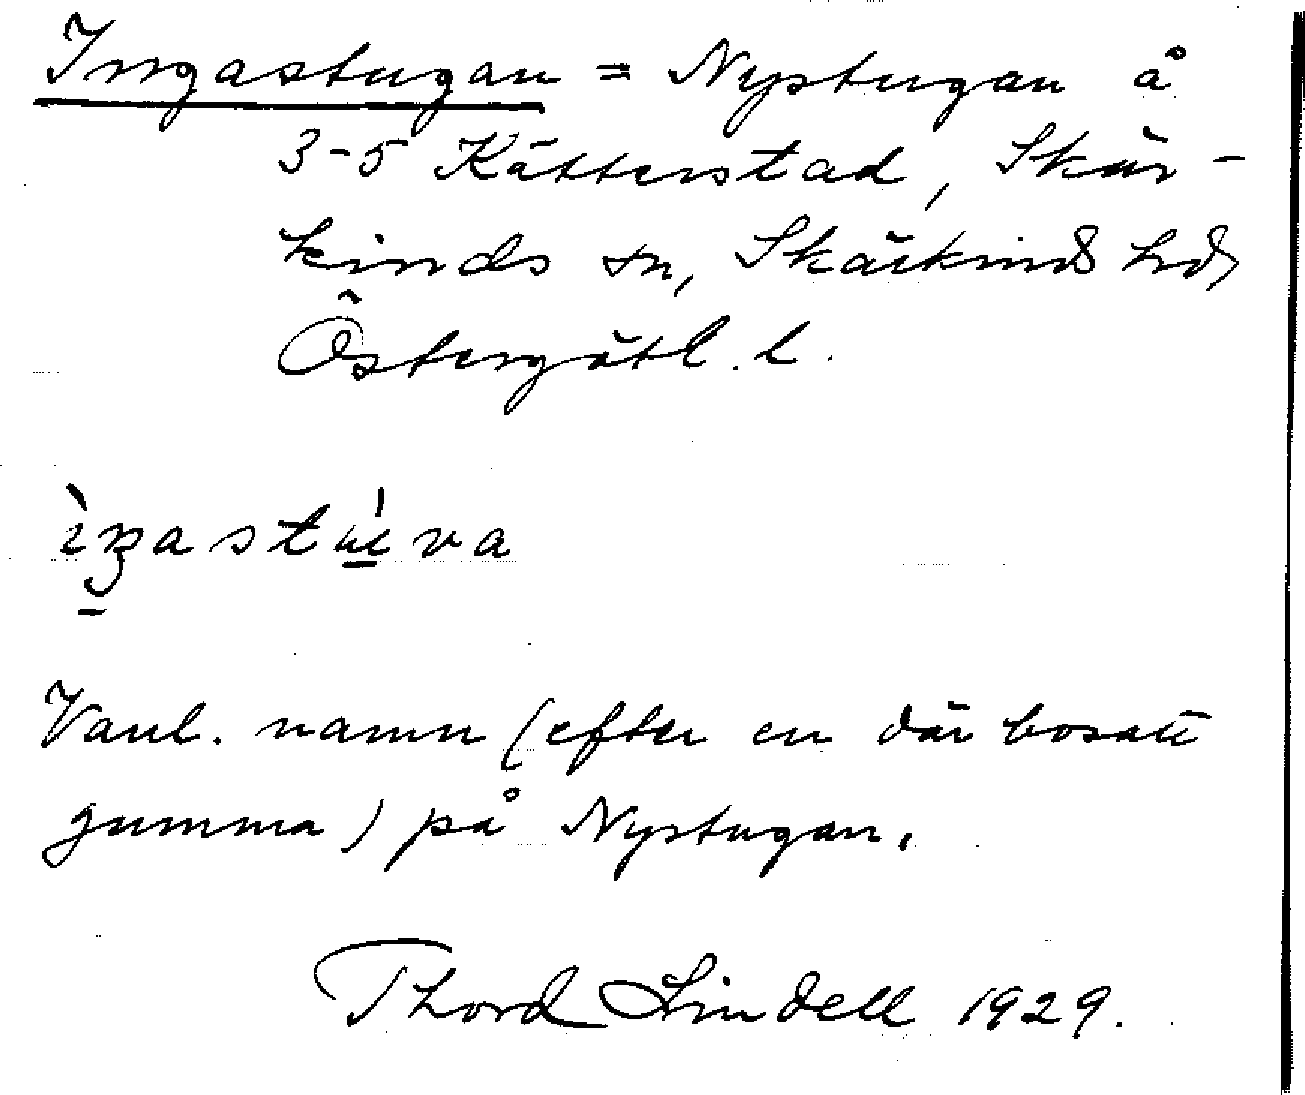 Ingastugan = Nystugan å
3-5 Kätterstad, Skär-
kinds sn, Skärkinds hd,
Östergötl. l.
ìŋastu̇́va
Vanl. namn (efter en där bosatt
gumma) på Nystugan.
Thord Lindell 1929.